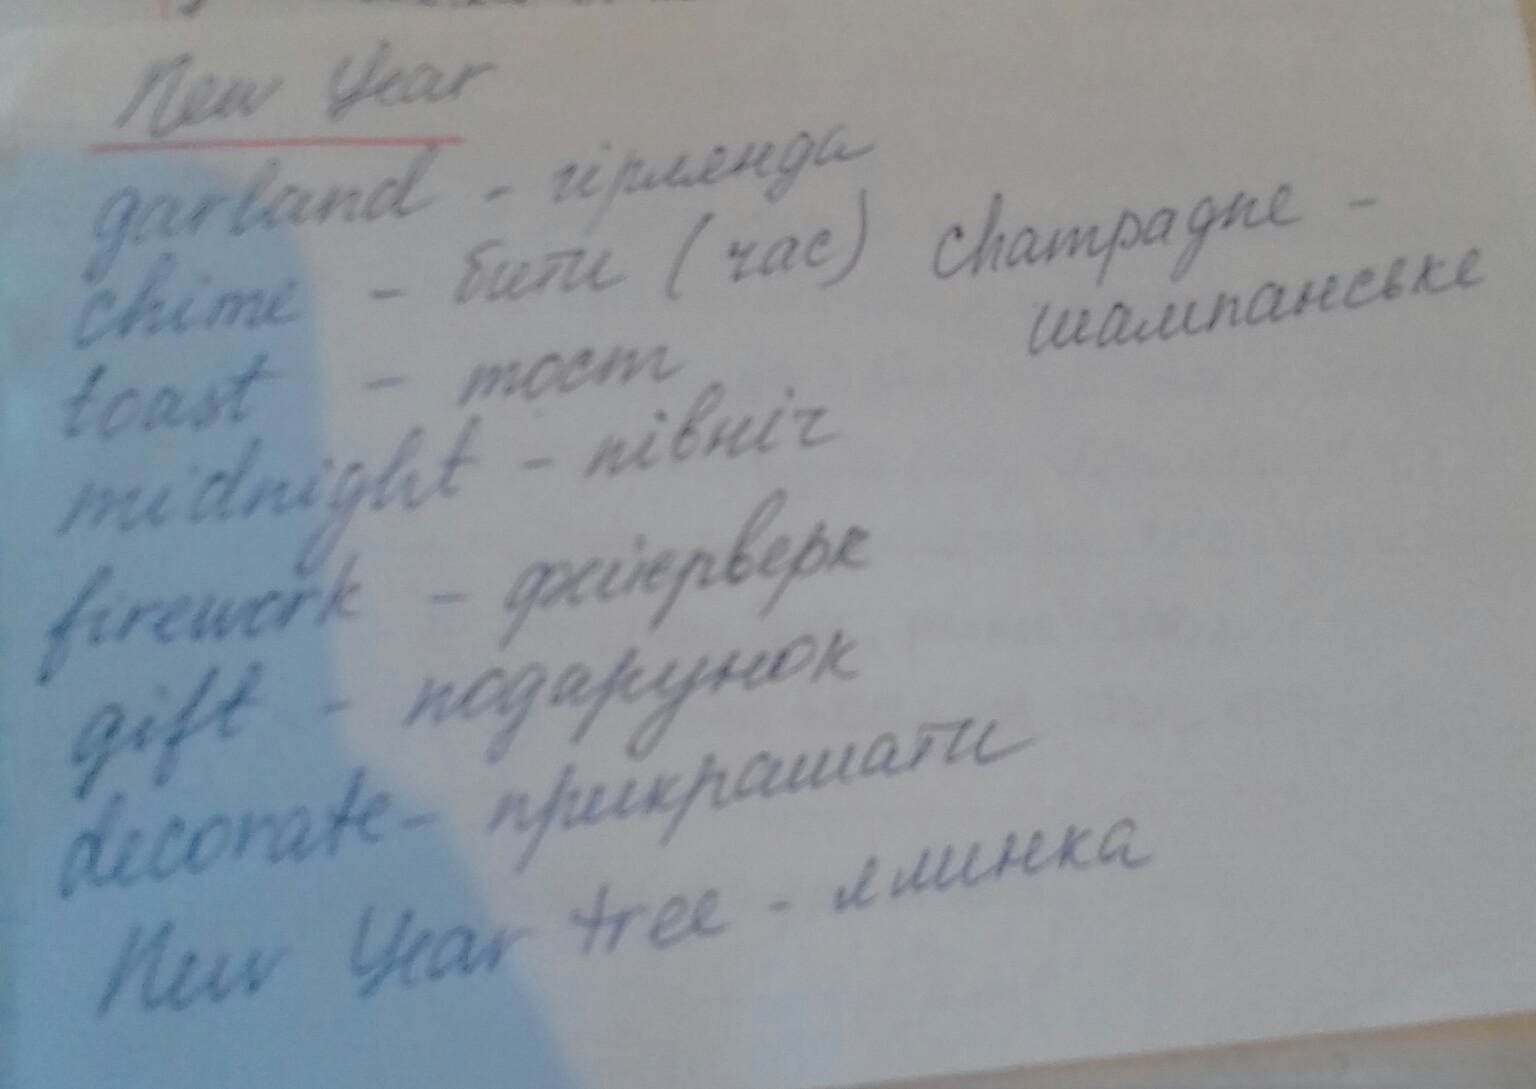 New Year
garland - гірлянда
chime - бити (час) champagne -
шампанське
toast - тост
midnight - північ
firework - феєрверк
gift - подарунок
decorate - прикрашати
New Year tree - ялинка